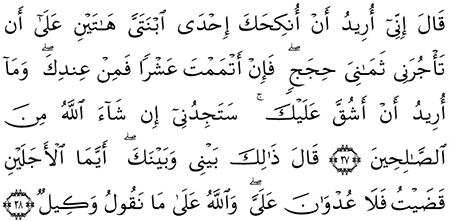 قَالَ إِنِّىٓ أُرِيدُ أَنْ أُنكِحَكَ إِحْدَى ٱبْنَتَىَّ هَـٰتَيْنِ عَلَىٰٓ أَن
تَأْجُرَنِى ثَمَـٰنِىَ حِجَجٍۢ ۖ فَإِنْ أَتْمَمْتَ عَشْرًۭا فَمِنْ عِندِكَ ۖ وَمَآ
أُرِيدُ أَنْ أَشُقَّ عَلَيْكَ ۚ سَتَجِدُنِىٓ إِن شَآءَ ٱللَّهُ مِنَ
ٱلصَّـٰلِحِينَ ﴿٢٧﴾ قَالَ ذَٰلِكَ بَيْنِى وَبَيْنَكَ ۖ أَيَّمَا ٱلْأَجَلَيْنِ
قَضَيْتُ فَلَا عُدْوَٰنَ عَلَىَّ ۖ وَٱللَّهُ عَلَىٰ مَا نَقُولُ وَكِيلٌۭ ﴿٢٨﴾